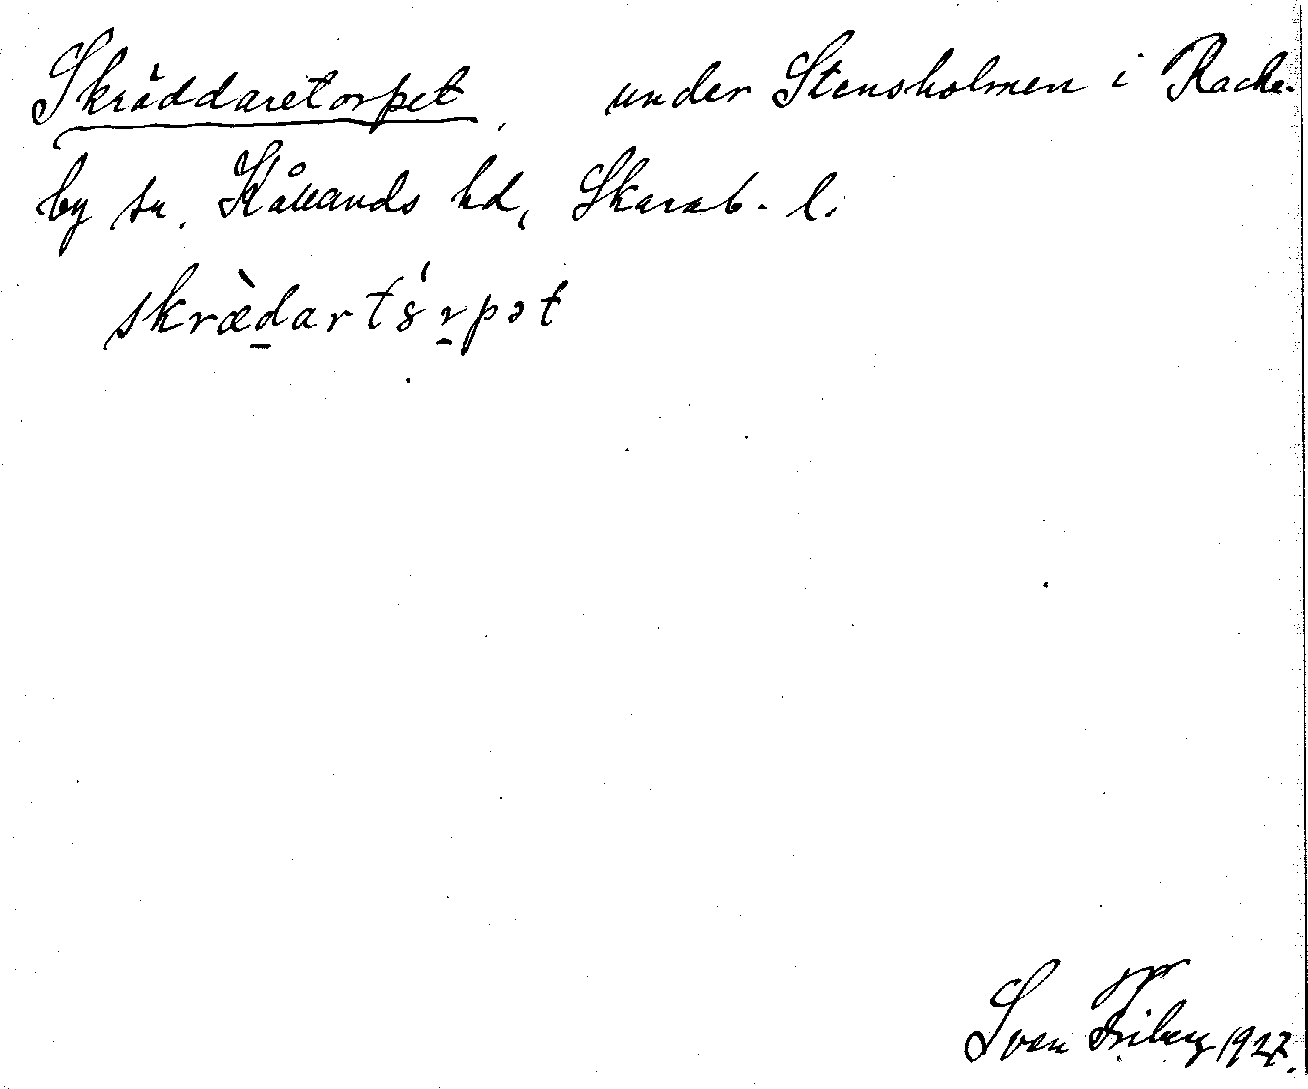 Skräddaretorpet, under Stensholmen i Racke-
by sn. Kållands hd, Skarab. l.
skræ̀d̲artɞ́r̲pət
Sven Friberg 1927.